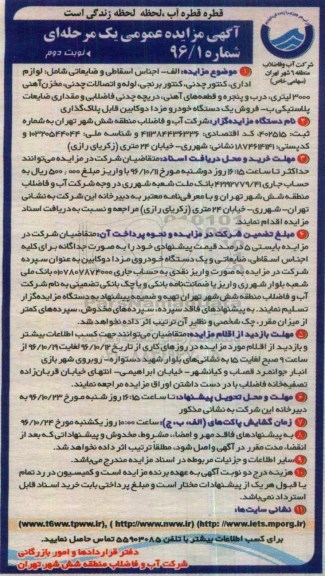 قطره قطره آب، لحظه لحظه زندگی است
آگهی مزایده عمومی یک مرحله‌ای
شماره ۹۶/۱
نوبت دوم
شرکت آب و فاضلاب
منطقه ۶ شهر تهران
(سهامی خاص)
۱ موضوع مزایده: الف- اجناس اسقاطی و ضایعاتی شامل: لوازم
اداری، کنتور چدنی، کنتور برنجی، لوله و اتصالات چدنی، مخزن آهنی
۳۰۰۰ لیتری، درب و پنجره و قطعه‌های آهنی، دریچه چدنی فاضلابی و مقداری ضایعات
پلاستیکی ب- فروش یک دستگاه خودرو مزدا دوکابین قابل پلاک‌گذاری
۲ نام دستگاه مزایده‌گزار: شرکت آب و فاضلاب منطقه شش شهر تهران به شماره
ثبت، ۴۰۲۵۱۵، کد اقتصادی: ۴۱۱۳۸۴۴۳۶۳۳۶ و شناسه ملی: ۱۰۳۲۰۵۴۴۰۴۴ و
کدپستی: ۱۸۷۴۶۱۴۱۴۱ نشانی: شهرری- خیابان ۲۴ متری (زکریای رازی)
۳ مهلت خرید و محل دریافت اسناد: متقاضیان شرکت در مزایده می‌توانند
حداکثر تا ساعت ۱۶:۱۵ روز دوشنبه مورخ ۹۶/۱۰/۱۱ با واریز مبلغ ۵۰۰,۰۰۰ ریال به
حساب جاری ۴۲۹۲۷۷۹/۴۱ بانک ملت شعبه شهرری در وجه شرکت آب و فاضلاب
منطقه شش شهر تهران و با معرفی‌نامه معتبر به دبیرخانه این شرکت به نشانی
تهران- شهرری- خیابان ۲۴ متری (زکریای رازی) مراجعه و نسبت به دریافت اسناد
مزایده اقدام نمایند.
۴ مبلغ تضمین شرکت در مزایده و نحوه پرداخت آن: متقاضیان شرکت در
مزایده بایستی ۵ درصد قیمت پیشنهادی خود را به صورت جداگانه برای کلیه
اجناس اسقاطی، ضایعاتی و یک دستگاه خودروی مزدا دوکابین به عنوان سپرده
شرکت در مزایده به صورت واریز نقدی به حساب جاری ۰۱۰۷۸۰۷۸۷۴۰۰۰ بانک ملی
شعبه بلوار شهرری واریز یا ضمانت‌نامه بانکی و یا چک بانکی تضمینی به نام شرکت
آب و فاضلاب منطقه شش شهر تهران تهیه و ضمیمه پیشنهاد به دستگاه مزایده‌گزار
تسلیم نمایند. به پیشنهادهای فاقد سپرده، سپرده‌های مخدوش، سپرده‌های کمتر
از میزان مقرر، چک شخصی و نظایر آن ترتیب اثر داده نخواهد شد.
۵ مهلت بازدید از اقلام مزایده: متقاضیان می‌توانند جهت کسب اطلاعات بیشتر
و بازدید از اقلام مورد مزایده در روزهای کاری از تاریخ ۹۶/۱۰/۱۲ لغایت ۹۶/۱۰/۱۹ از
ساعت ۹ صبح لغایت ۱۵ به نشانی‌های بلوار شهید دستواره- روبروی شهر بازی
انبار جوانمرد قصاب و کیانشهر- خیابان ابراهیمی- انتهای خیابان قربان‌زاده
تصفیه‌خانه فاضلاب با در دست داشتن اوراق مزایده مراجعه نمایند.
۶ مهلت و محل تحویل پیشنهاد: تا ساعت ۱۶:۱۵ روز شنبه مورخ ۹۶/۱۰/۲۳ به
دبیرخانه این شرکت به نشانی مذکور
۷ زمان گشایش پاکت‌های (الف، ب، ج): ساعت ۱۰:۰۰ روز یکشنبه مورخ ۹۶/۱۰/۲۴
۸ به پیشنهادهای فاقد مهر و امضاء، مشروط، مخدوش و پیشنهاداتی که بعد از
انقضاء مدت مقرر در آگهی واصل شود، مطلقاً ترتیب اثر داده نخواهد شد.
۹ سایر اطلاعات و جزئیات مربوطه در اسناد مزایده مندرج می‌باشد.
۱۰ هزینه درج دو نوبت آگهی به عهده برنده مزایده است و کمیسیون در رد تمام
یا قبول هر یک از پیشنهادات مختار است و مبلغ پرداختی بابت خرید اسناد قابل
استرداد نمی‌باشد.
۱۱ نشانی سایت‌ها:
(www.t6ww.tpww.ir), (http://www.nww.ir) (http://www.iets.mporg.ir)
برای کسب اطلاعات بیشتر با تلفن ۵۵۹۰۳۰۸۵ تماس حاصل نمایید.
دفتر قراردادها و امور بازرگانی
شرکت آب و فاضلاب منطقه شش شهر تهران